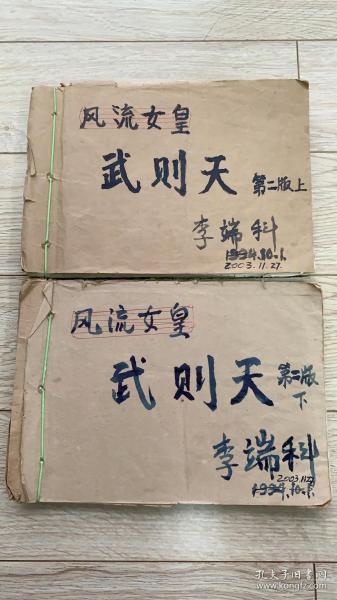 风流女皇
武则天
第二版上
李端科
1994.10.1.
2003.11.27.
风流女皇
武则天
第二版
下
李端科
2003.11.27
1994.10.1.
孔夫子旧书网
www.kongfz.com